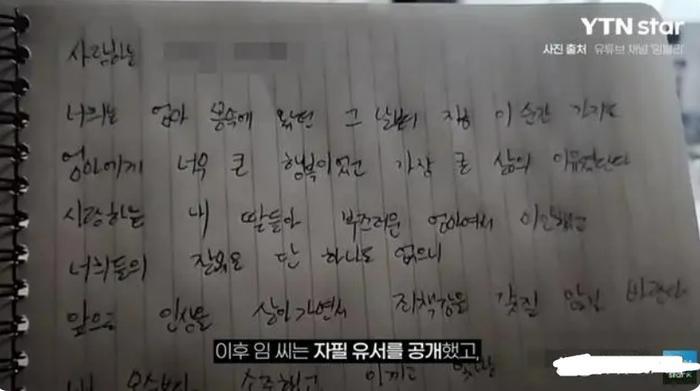 YTN star
사진 출처 유튜브 채널 '임블리'
사랑하는
너희는 엄마 몸속에 왔던 그 날부터 지금 이 순간 까지도
엄마에게 너무 큰 행복이었고 가장 큰 삶의 이유였단다
사랑하는 내 딸들아 부끄러운 엄마여서 미안했고
너희들의 잘못은 단 하나도 없으니
앞으로 인생을 살아가면서 죄책감을 갖질 않길 바란다
이후 임 씨는 자필 유서를 공개했고,